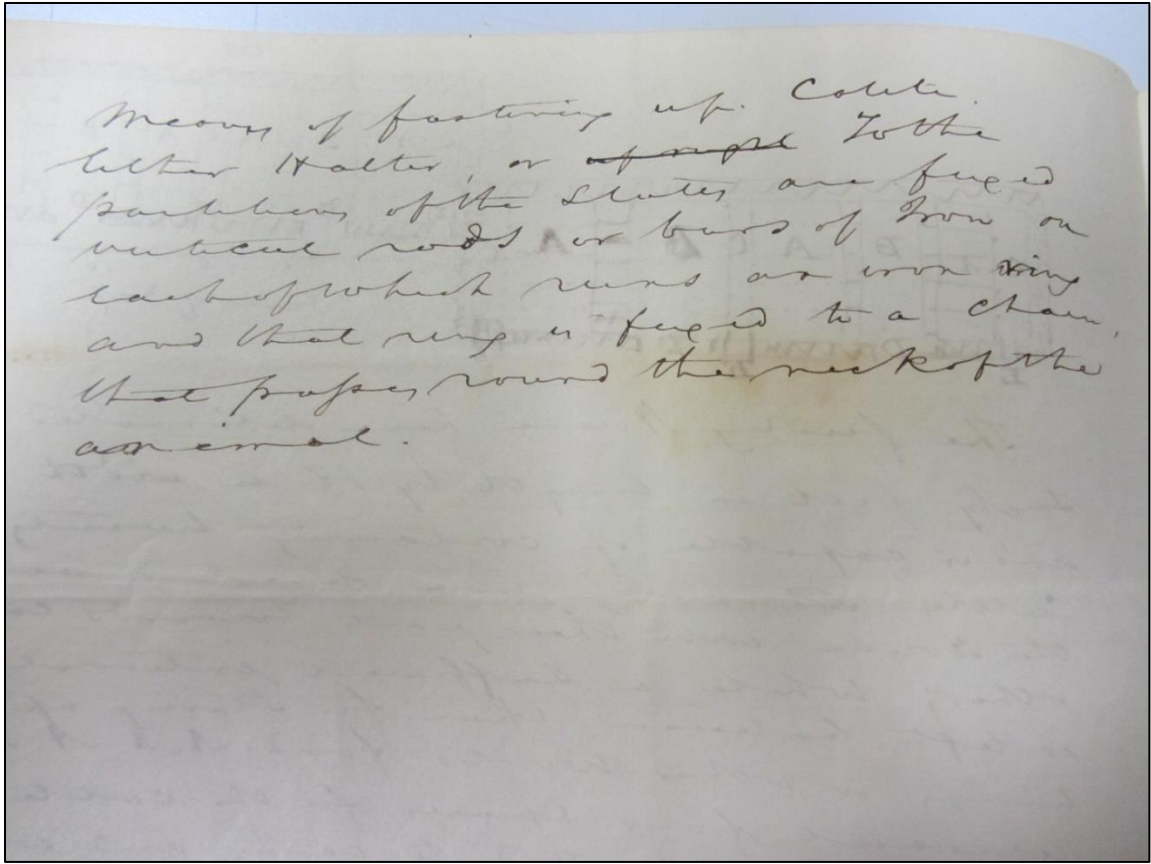 Means of fastening up. Cattle.
Either Halter, or upright To the
partitions of the Stalls are fixed
vertical rods or bars of Iron on
each of which runs an iron ring
and that ring is fixed to a chain,
that passes round the neck of the
animal.